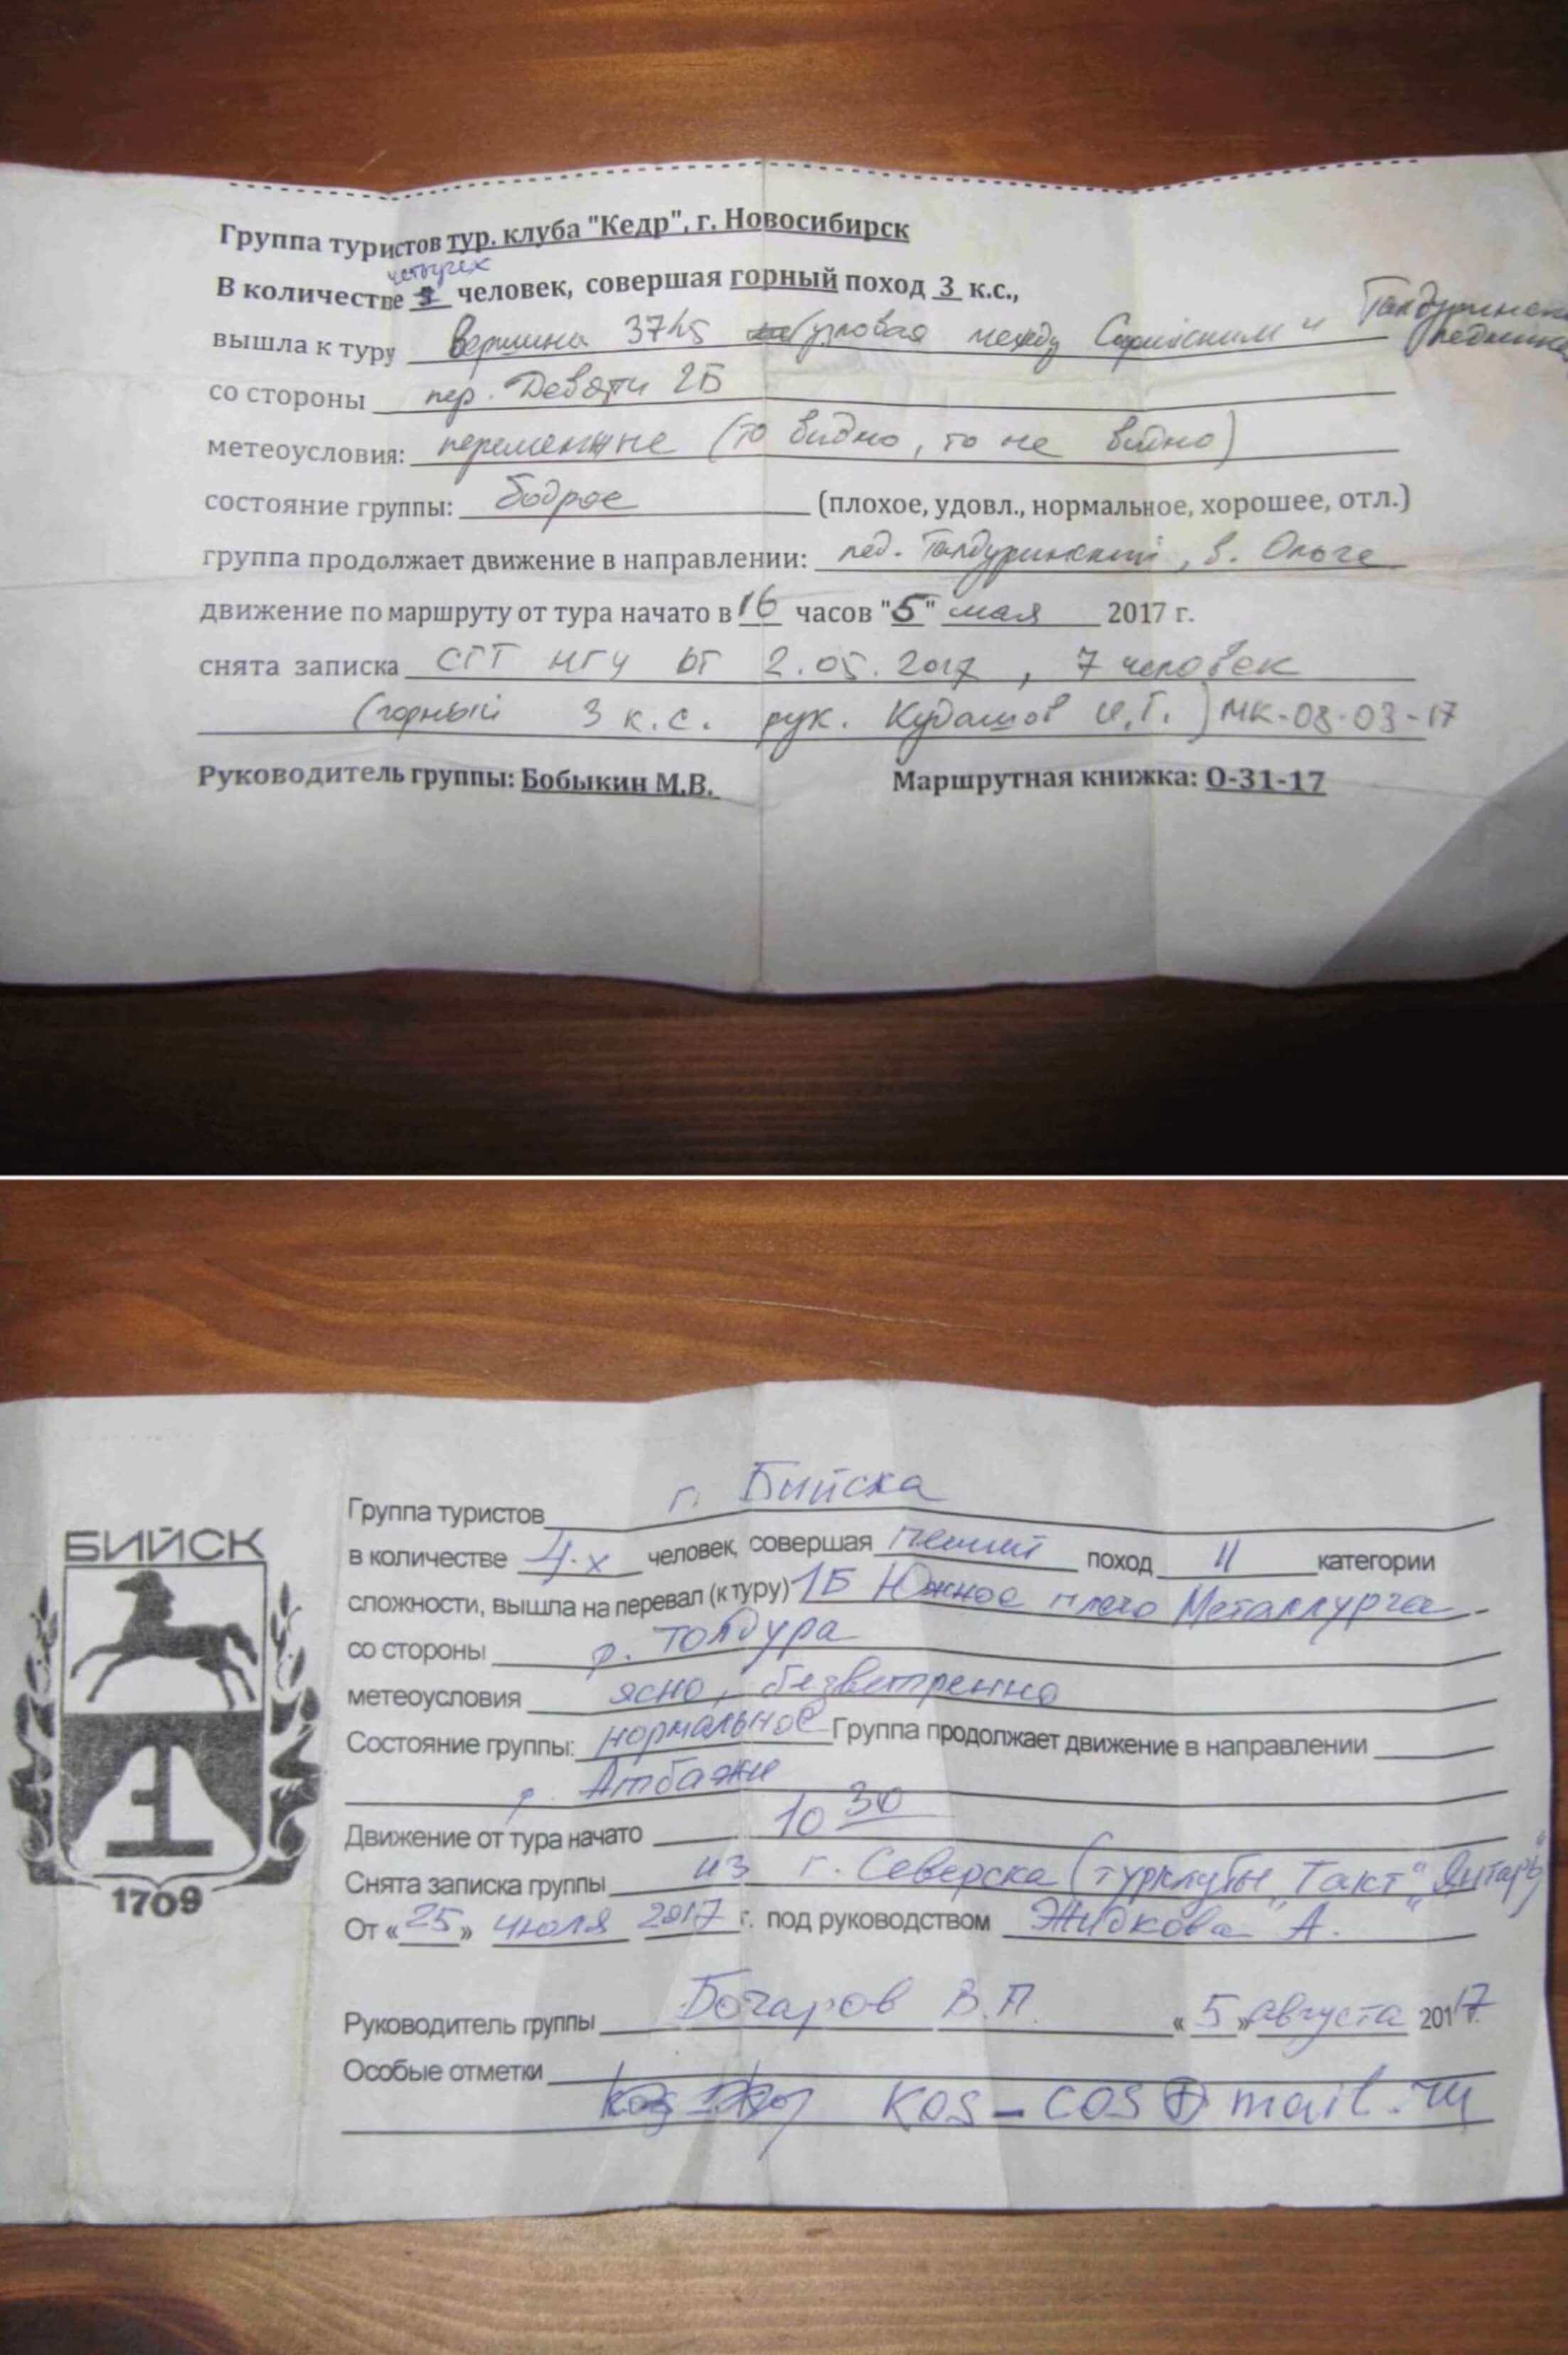 Группа туристов тур. клуба "Кедр", г. Новосибирск
четырех
В количестве человек, совершая горный поход 3 к.с.,
вышла к туру вершина 3745 узловая между Софийским и Талдуринским ледником
со стороны пер. Девяти 2Б
метеоусловия: переменные (то видно, то не видно)
состояние группы: бодрое (плохое, удовл., нормальное, хорошее, отл.)
группа продолжает движение в направлении: лед. Талдуринский, в. Ольге
движение по маршруту от тура начато в 16 часов "5" мая 2017 г.
снята записка СГТ НГУ от 2.05.2017, 7 человек
(горный 3 к.с. рук. Кудашов И.Г.) МК-08-03-17
Руководитель группы: Бобыкин М.В. Маршрутная книжка: О-31-17
БИЙСК
1709
Группа туристов г. Бийска
в количестве 4-х человек, совершая пеший поход II категории
сложности, вышла на перевал (к туру) 1Б Южное плечо Металлурга
со стороны р. Толдура
метеоусловия ясно, безветренно
Состояние группы: нормальное Группа продолжает движение в направлении
р. Атбажи
Движение от тура начато 10 30
Снята записка группы из г. Северска (турклубы "Такт" "Янтарь")
От «25» июля 2017 г. под руководством Жидкова А.
Руководитель группы Бочаров В.П. «5» августа 2017.
Особые отметки
kos-cos@mail.ru